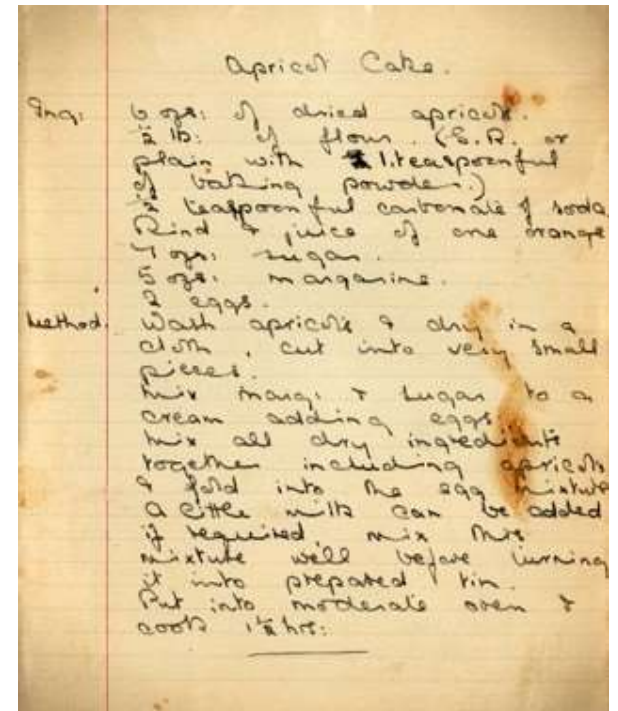 Apricot Cake.
Ing: 6 ozs: of dried apricots.
½ lb: of flour. (S.R. or
plain with 1. teaspoonful
of baking powder.)
½ teaspoonful carbonate of soda
Rind & juice of one orange
7 ozs: sugar.
5 ozs: margarine.
2 eggs.
Method. Wash apricots & dry in a
cloth, cut into very small
pieces.
Mix marg: & sugar to a
cream adding eggs
mix all dry ingredients
together including apricots
& fold into the egg mixture
a little milk can be added
if required. mix this
mixture well before turning
it into prepared tin.
Put into moderate oven &
cook 1½ hrs: